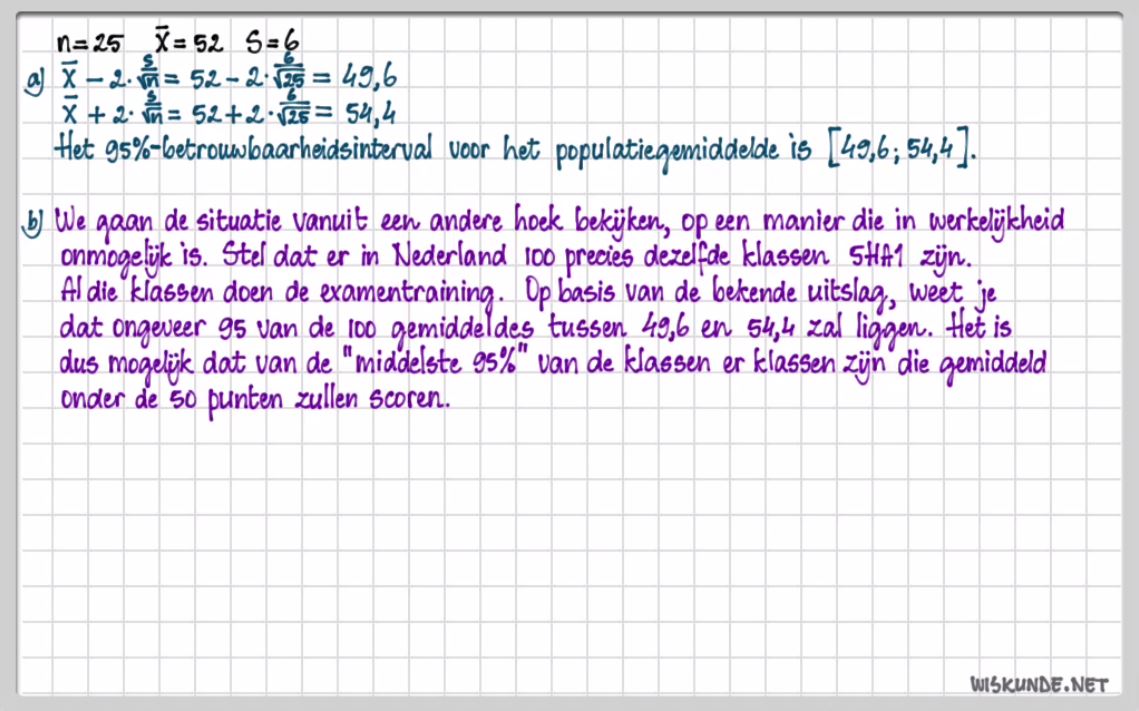 n=25 x̄=52 S=6
a) x̄ - 2·s/√n = 52 - 2·6/√25 = 49,6
x̄ + 2·s/√n = 52 + 2·6/√25 = 54,4
Het 95%-betrouwbaarheidsinterval voor het populatiegemiddelde is [49,6; 54,4].
b) We gaan de situatie vanuit een andere hoek bekijken, op een manier die in werkelijkheid
onmogelijk is. Stel dat er in Nederland 100 precies dezelfde klassen 5HA1 zijn.
Al die klassen doen de examentraining. Op basis van de bekende uitslag, weet je
dat ongeveer 95 van de 100 gemiddeldes tussen 49,6 en 54,4 zal liggen. Het is
dus mogelijk dat van de "middelste 95%" van de klassen er klassen zijn die gemiddeld
onder de 50 punten zullen scoren.
WISKUNDE.NET